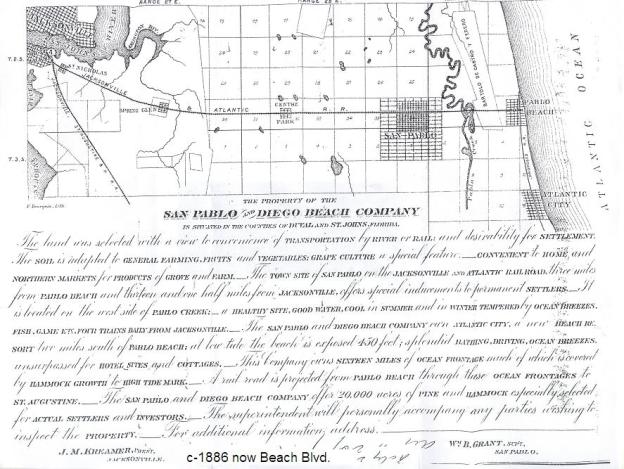 RANGE 27 E.
RANGE 28 E.
T. 2. S.
ST. NICHOLAS
JACKSONVILLE
SPRING GLEN
ATLANTIC R. R.
CENTRE
PARK
SAN PABLO
PABLO
BEACH
ATLANTIC OCEAN
T. 3. S.
ATLANTIC
CITY
THE PROPERTY OF THE
SAN PABLO AND DIEGO BEACH COMPANY
IS SITUATED IN THE COUNTIES OF DUVAL AND ST. JOHNS, FLORIDA.
The land was selected with a view to convenience of TRANSPORTATION by RIVER or RAIL: and desirability for SETTLEMENT.
The SOIL is adapted to GENERAL FARMING, FRUITS and VEGETABLES: GRAPE CULTURE a special feature. CONVENIENT to HOME and
NORTHERN MARKETS for PRODUCTS of GROVE and FARM. The TOWN SITE of SAN PABLO on the JACKSONVILLE and ATLANTIC RAIL ROAD, three miles
from PABLO BEACH and thirteen and one half miles from JACKSONVILLE, offers special inducements to permanent SETTLERS. It
is located on the west side of PABLO CREEK; a HEALTHY SITE, GOOD WATER, COOL in SUMMER and in WINTER TEMPERED by OCEAN BREEZES.
FISH, GAME ETC. FOUR TRAINS DAILY FROM JACKSONVILLE. The SAN PABLO and DIEGO BEACH COMPANY own ATLANTIC CITY, a new BEACH RE-
SORT two miles south of PABLO BEACH; at low tide the beach is exposed 450 feet; splendid BATHING, DRIVING, OCEAN BREEZES.
unsurpassed for HOTEL SITES and COTTAGES. This Company owns SIXTEEN MILES of OCEAN FRONTAGE much of which is covered
by HAMMOCK GROWTH to HIGH TIDE MARK. A rail road is projected from PABLO BEACH through these OCEAN FRONTAGES to
ST. AUGUSTINE. The SAN PABLO and DIEGO BEACH COMPANY offer 20,000 acres of PINE and HAMMOCK especially selected
for ACTUAL SETTLERS and INVESTORS. The superintendent will personally accompany any parties wishing to
inspect the PROPERTY. For additional information, address.
J. M. KREAMER, PREST.
JACKSONVILLE.
WM. B. GRANT, SUPT.
SAN PABLO.
c-1886 now Beach Blvd.